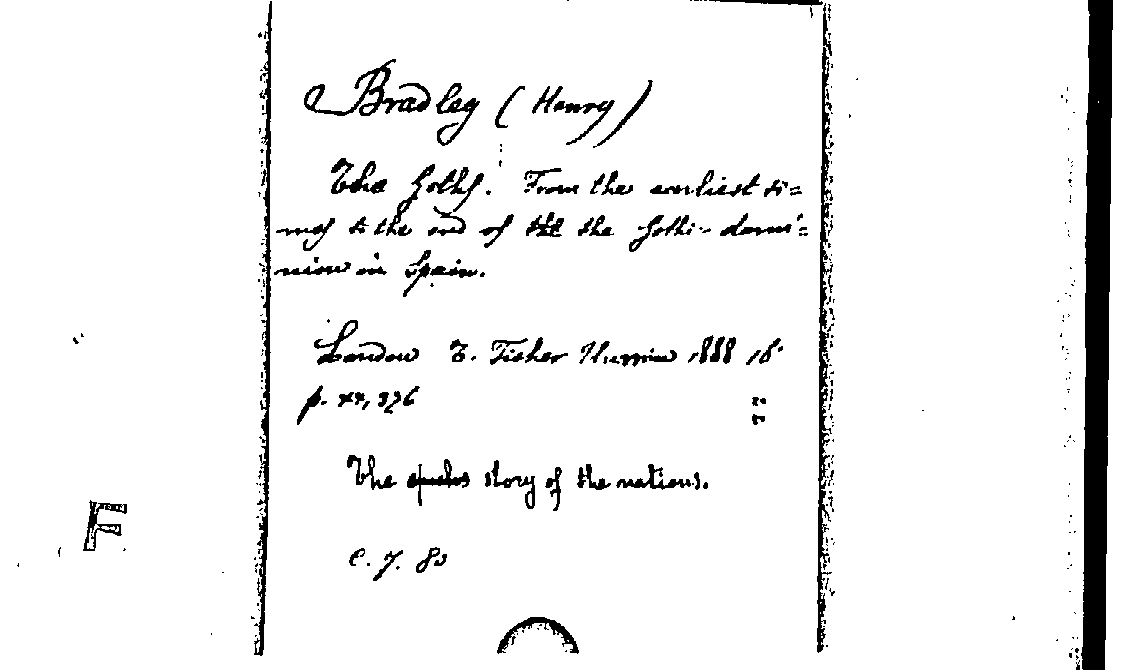 Bradley (Henry)
The Goths. From the earliest ti=
mes to the end of the the Gothi- domi=
nion in Spain.
London T. Fisher Unwin 1888 16°
p. xx, 376
The story of the nations.
C. 7. 80
F